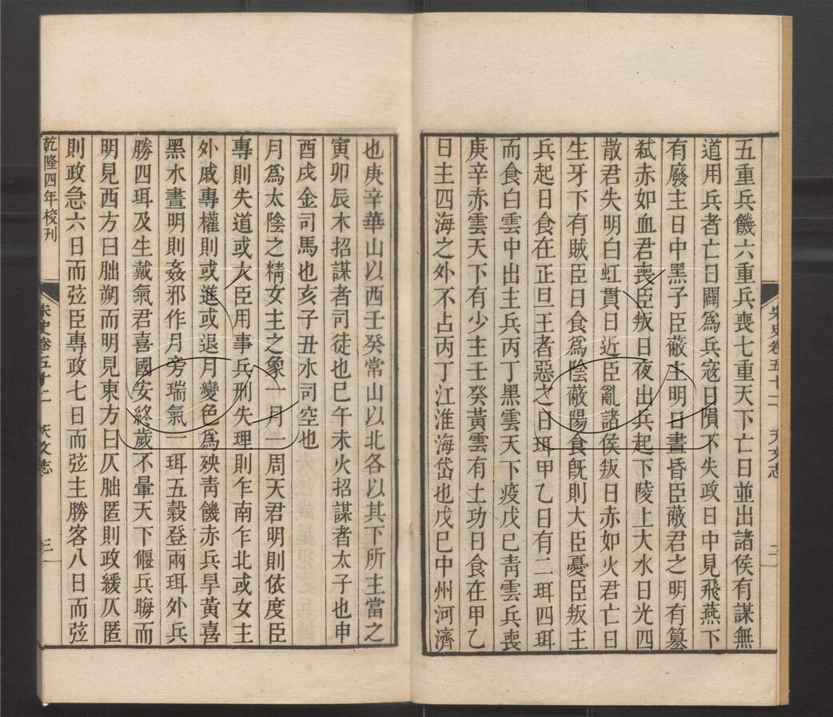 五重兵饑六重兵喪七重天下亡日並出諸侯有謀無
道用兵者亡日鬬爲兵寇日隕下失政日中見飛燕下
有廢主日中黑子臣蔽主明日晝昏臣蔽君之明有篡
弑赤如血君喪臣叛日夜出兵起下陵上大水日光四
散君失明白虹貫日近臣亂諸侯叛日赤如火君亡日
生牙下有賊臣日食爲陰蔽陽食旣則大臣憂臣叛主
兵起日食在正旦王者惡之日珥甲乙日有二珥四珥
而食白雲中出主兵丙丁黑雲天下疫戊巳靑雲兵喪
庚辛赤雲天下有少主壬癸黃雲有土功日食在甲乙
日主四海之外不占丙丁江淮海岱也戊巳中州河濟
宋史卷五十二 天文志 二
也庚辛華山以西壬癸常山以北各以其下所主當之
寅卯辰木招謀者司徒也巳午未火招謀者太子也申
酉戌金司馬也亥子丑水司空也
月爲太陰之精女主之象一月一周天君明則依度臣
專則失道或大臣用事兵刑失理則乍南乍北或女主
外戚專權則或進或退月變色爲殃靑饑赤兵旱黃喜
黑水晝明則姦邪作月旁瑞氣一珥五穀登兩珥外兵
勝四珥及生戴氣君喜國安終歲不暈天下偃兵晦而
明見西方曰朏朔而明見東方曰仄朏匿則政緩仄匿
則政急六日而弦臣專政七日而弦主勝客八日而弦
宋史卷五十二 天文志 三
乾隆四年校刊